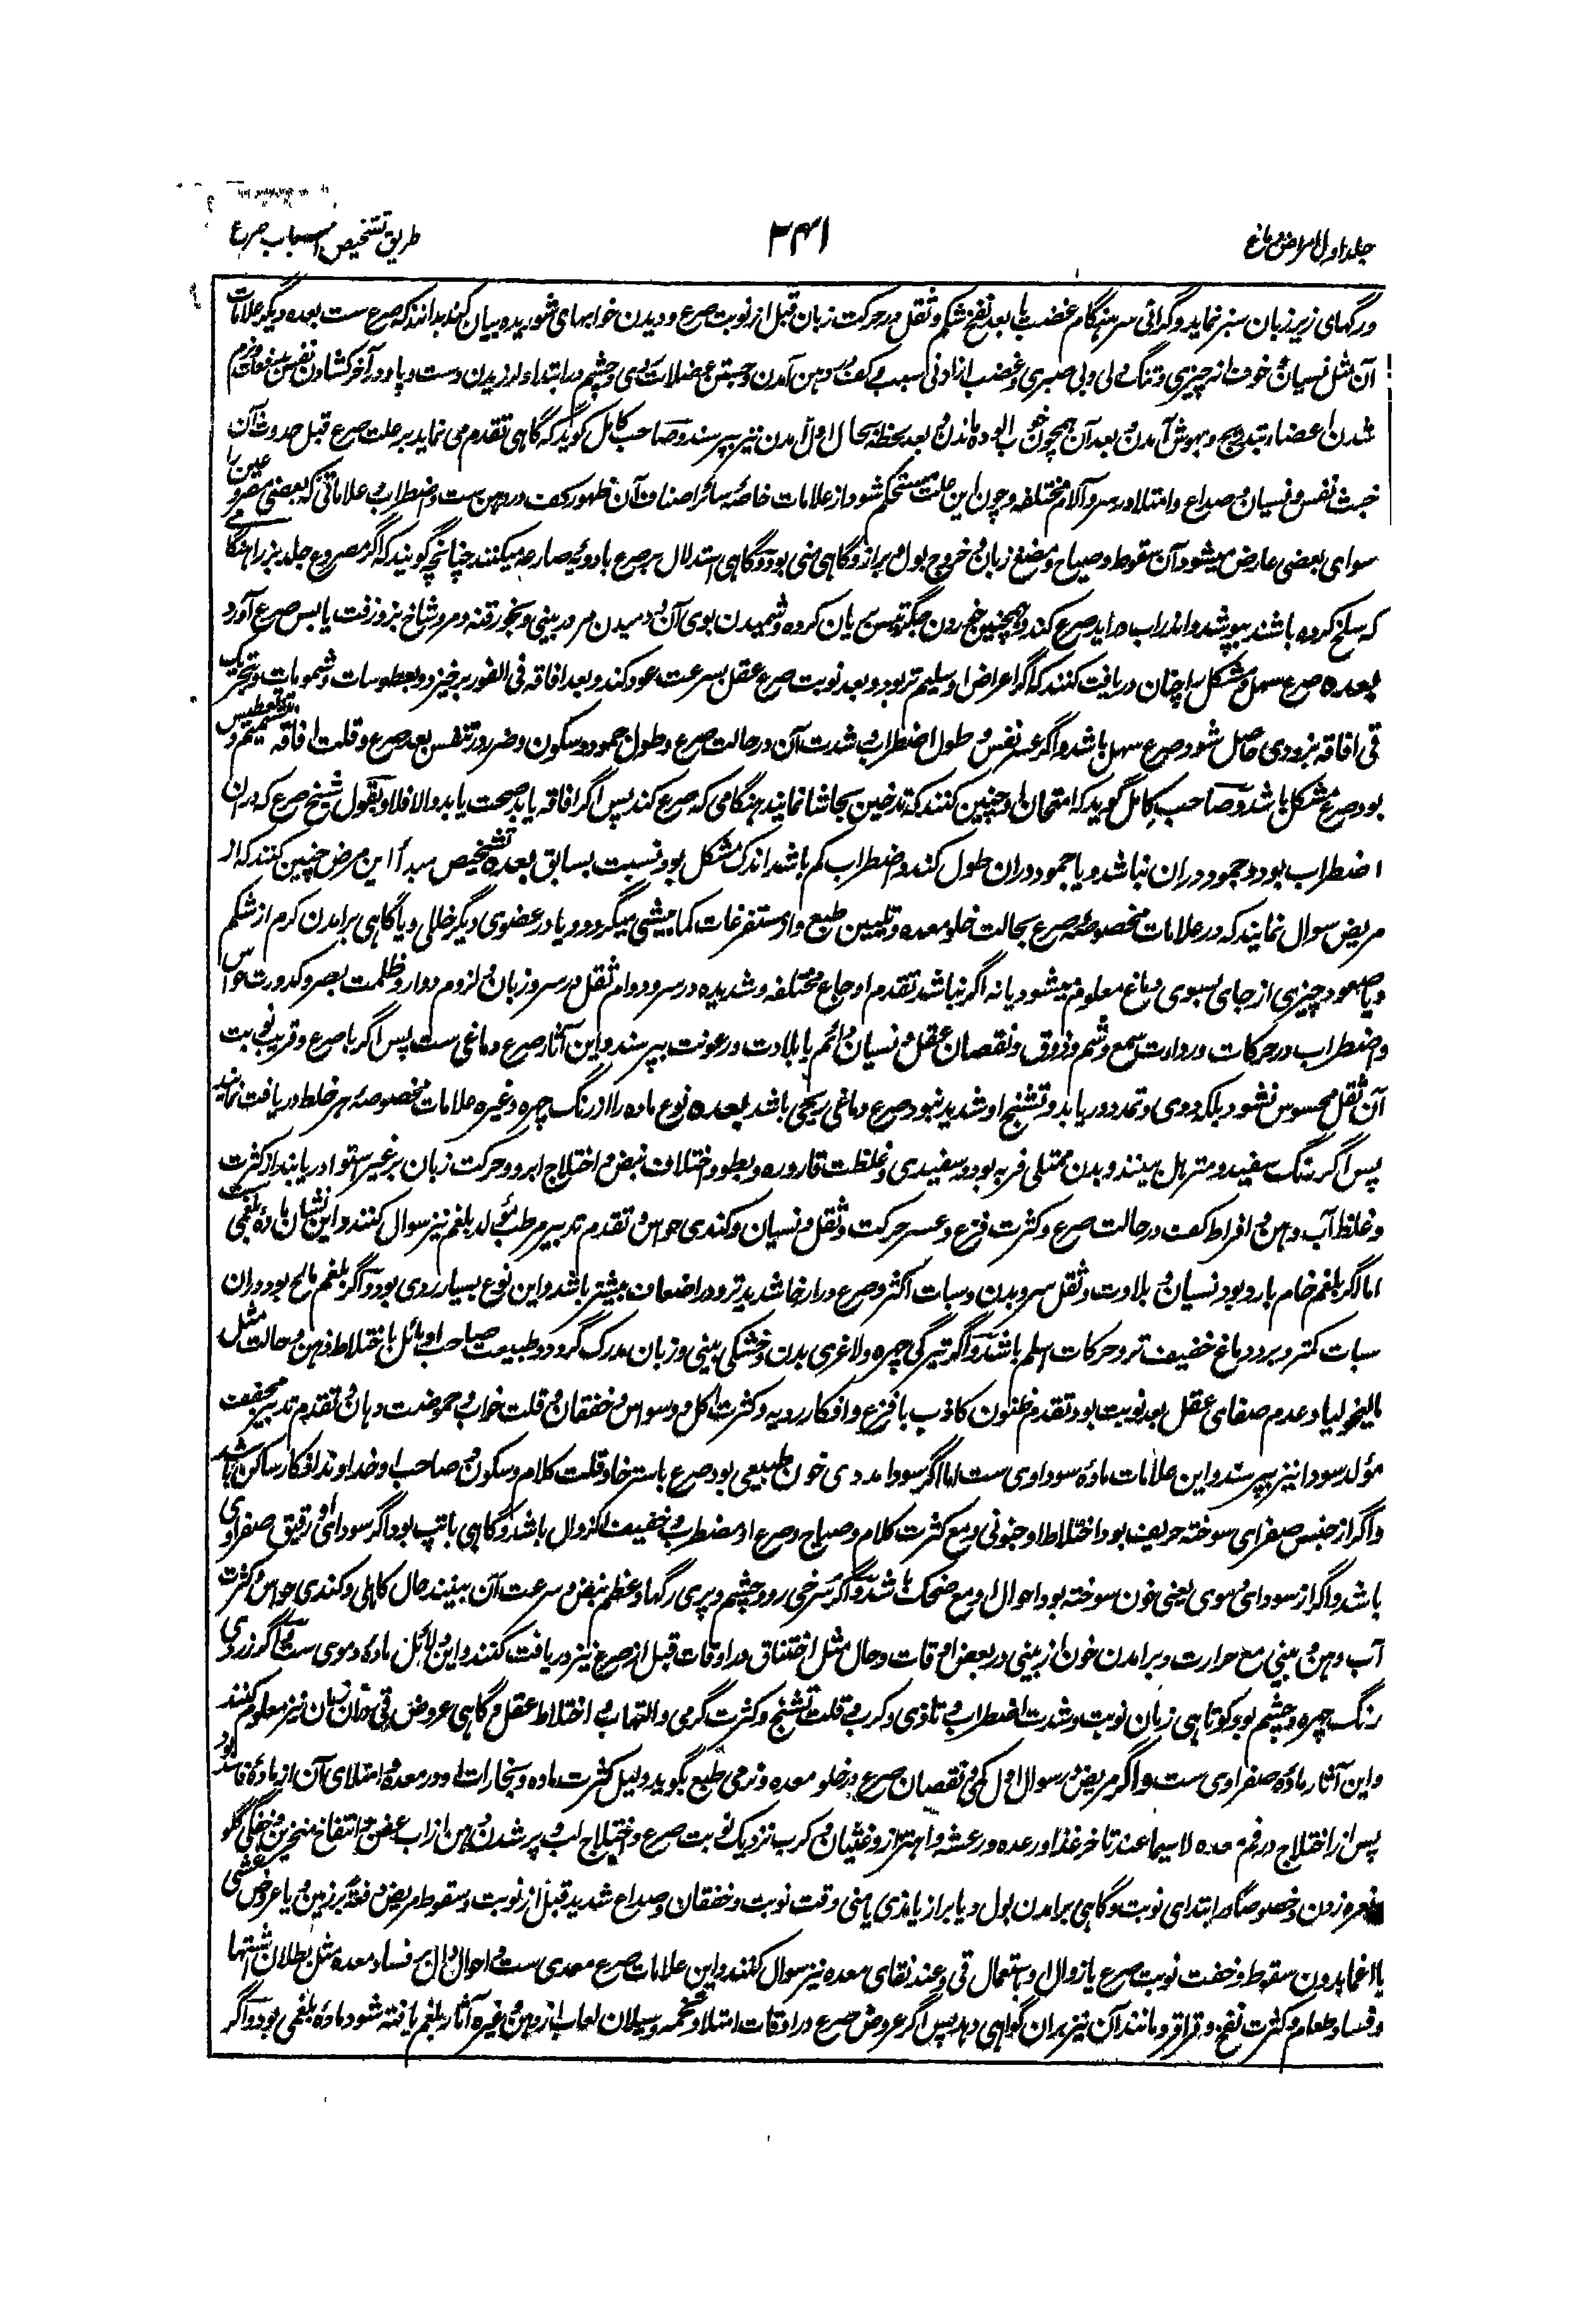 جلد اول امراض دماغ
۳۴۱
طریق تشخیص اسباب صرع
و رگهای زیر زبان سبز نماید و گرانی سر هنگام غضب یا بعد نفخ شکم و ثقل در حرکت زبان قبل از نوبت صرع و دیدن خوابهای شوریده بیان کند بدانند که صرع ست بعده دیگر علامات
آن مثل نسیان و خوف از هر چیزی و تنگدلی و بی صبری و غضب از ادنی سبب و کف بر دهن آمدن و جستن عضلات روی و چشم در ابتدا و لرزیدن دست و پا و در آخر کشادن نفس و نرم
شدن اعضا بتدریج و بهوش آمدن و بعد آن همچون خواب آلوده ماندن و بعد لحظه بحال اول آمدن نیز بپرسند و صاحب کامل گوید که گاهی تقدم می نماید بر علت صرع قبل حدوث آن
خبث نفس و نسیان و صداع و امتلا در سر و آلام مختلفه و چون این علت مستحکم شود از علامات خاصه سائر اصناف آن ظهور کف در دهن ست و اضطراب و علاماتی که بعضی مصروعین را
سوای بعضی عارض میشود آن سقوط و صیاح و مضغ زبان و خروج بول و براز و گاهی منی بود و گاهی استدلال بر صرع بادویه صارعه میکنند چنانچه گویند که اگر مصروع جلد بز را هنگامی
که سلخ کرده باشند بپوشد و اندر آب در آید صرع کند و همچنین خوردن جگر تیس بریان کرده و شمیدن بوی آن و دمیدن مر در بینی و بخور قنه و مر و شاخ بز و زفت یا بس صرع آورد
بعده صرع سهل و مشکل را چنان دریافت کنند که اگر اعراض او سلیم تر بود و بعد نوبت صرع عقل بسرعت عود کند و بعد افاقه فی الفور برخیزد و بعطوسات و شمومات و تحریک
قی افاقه بزودی حاصل شود صرع سهل باشد و اگر عسر نفس و طول اضطراب و شدت آن در حالت صرع و طول جمود و سکون و ضرر در تنفس بعد صرع و قلت افاقه بتشمیم و تعطیس
بود صرع مشکل باشد و صاحب کامل گوید که امتحان او چنین کنند که تدخین بجاشا نمایند هنگامی که صرع کند پس اگر افاقه یابد صحت یابد والا فلا و بقول شیخ صرع که در آن
اضطراب بود و جمود در آن نباشد و یا جمود در آن طول کند و اضطراب کم باشد اندک مشکل بود نسبت بسابق بعده تشخیص مبدأ این مرض چنین کنند که از
مریض سوال نمایند که در علامات مخصوصه صرع بحالت خلو معده و تلیین طبع و از مستفرغات کما بیشی میگردد و یا در عضوی دیگر خللی و یا گاهی برآمدن کرم از شکم
و یا صعود چیزی از جای بسوی دماغ معلوم میشود یا نه اگر نباشد تقدم اوجاع مختلفه و شدیده در سر و دوام ثقل در سر و زبان و لزوم دوار و ظلمت بصر و کدورت حواس
و اضطراب در حرکات و ردائت سمع و شم و ذوق و نقصان عقل و نسیان دائم یا بلادت و رعونت بپرسند و این آثار صرع دماغی ست پس اگر با صرع و قریب نوبت
آن ثقل محسوس نشود بلکه دوی و تمدد دریابد و تشنج او شدید نبود صرع دماغی ریحی باشد بعده نوع ماده را از رنگ چهره و غیره علامات مخصوصه هر خلط دریافت نمایند
پس اگر رنگ سفید و مترهل بینند و بدن ممتلی فربه بود و سفیدی و غلظت قاروره و بطوء و اختلاف نبض و اختلاج ابرو و حرکت زبان بر غیر استوا دریابند از کثرت
و غلظ آب دهن و افراط کف در حالت صرع و کثرت فزع و عسر حرکت و ثقل و نسیان و کندی حواس و تقدم تدبیر مرطب مولد بلغم نیز سوال کنند و این نشان ماده بلغمی ست
اما اگر بلغم خام بارد بود نسیان و بلادت و ثقل سر و بدن و سبات اکثر و صرع در ارخا شدیدتر و در اضعاف بیشتر باشد و این نوع بسیار ردی بود و اگر بلغم مالح بود در آن
سبات کمتر و برد دماغ خفیف تر و حرکات اسلم باشد و اگر تیرگی چهره و لاغری بدن و خشکی بینی و زبان مدرک گردد و طبیعت صاحب او مائل باختلاط ذهن و حالت مثل
مالیخولیا و عدم صفای عقل بعد نوبت بود تقدم ظنون کاذب با فزع و افکار ردیه و کثرت اکل و وسواس و خفقان و قلت خواب و حموضت دهان و تقدم تدبیر مجفف
مولد سودا نیز بپرسند و این علامات ماده سوداوی ست اما اگر سودا دردی خون طبیعی بود صرع با استرخا و قلت کلام و سکون و صاحب او خداوند افکار ساکن باشد
و اگر از جنس صفرای سوخته حریف بود اختلاط او جنونی و مع کثرت کلام و صیاح و صرع او مضطرب و خفیف الزوال باشد و گاهی با تپ بود اگر سودای او رقیق صفراوی
باشد و اگر از سودای دموی یعنی خون سوخته بود احوال او مع ضحک باشد و اگر سرخی رو و چشم و پری رگها و عظم نبض و سرعت آن بینند حال کاهلی و کندی حواس و کثرت
آب دهن و بینی مع حرارت و برآمدن خون از بینی در بعض اوقات و حال مثل اختناق در اوقات قبل از صرع نیز دریافت کنند و این دلائل ماده دموی ست و اگر زردی
رنگ چهره و چشم بود کوتاهی زمان نوبت و شدت اضطراب و تاذی و کرب و قلت تشنج و کثرت گرمی و التهاب و اختلاط عقل و گاهی عروض قی در آن زمان نیز معلوم کنند
و این آثار ماده صفراوی ست و اگر مریض در سوال اول کمی و نقصان صرع در خلو معده و نرمی طبع بگوید دلیل کثرت ماده و بخارات او در معده و امتلای آن از ماده فاسد بود
پس از اختلاج در فم معده لا سیما عند تاخر غذا و رعده و رعشه و اهتزاز و غثیان و کرب نزدیک نوبت صرع و اختلاج لب و پر شدن دهن از آب عفن و انتفاخ منخرین و خفگی گلو
و نعره زدن و خصوصاً در ابتدای نوبت و گاهی برآمدن بول و یا براز یا مذی یا منی وقت نوبت و خفقان و صداع شدید قبل از نوبت و سقوط مریض دفعةً بر زمین و یا عروض غشی
یا اغما بدون سقوط و خفت نوبت صرع یا زوال او باستعمال قی و عند نقای معده نیز سوال کنند و این علامات صرع معدی ست و احوال دال بر فساد معده مثل بطلان اشتها
و فساد طعام و کثرت نفخ و قراقر و مانند آن نیز بر آن گواهی دهد پس اگر عروض صرع در اوقات امتلا و تخمه و سیلان لعاب از دهن و غیره آثار بلغم یافته شود ماده بلغمی بود و اگر